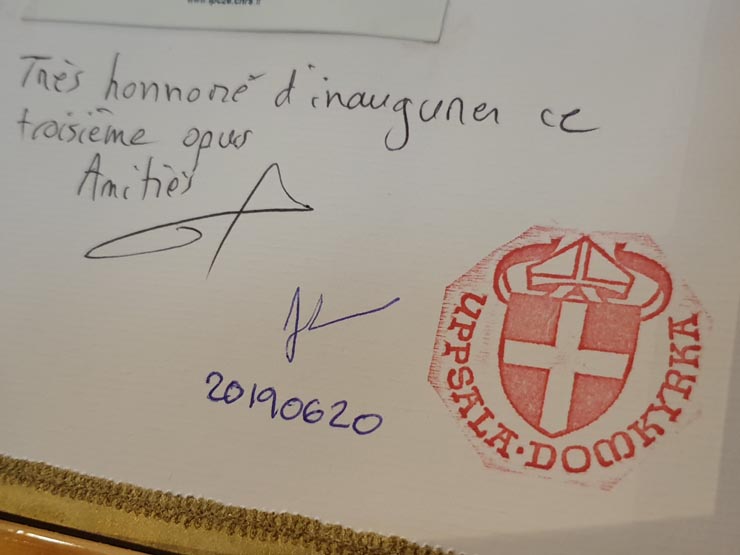 Très honnoré d'inaugurer ce
troisième opus
Amitiès
20190620
UPPSALA · DOMKYRKA